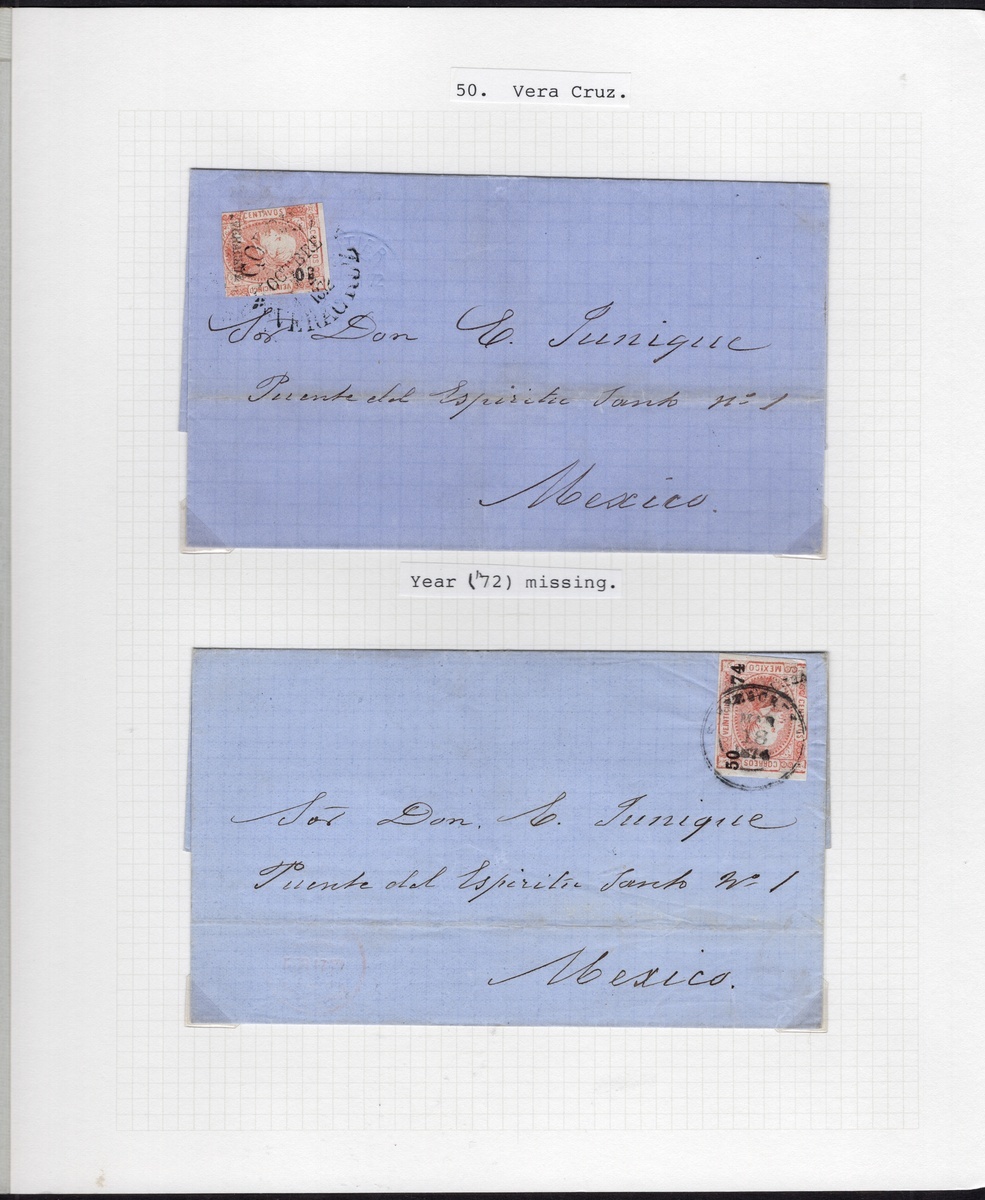 50. Vera Cruz.
CENTAVOS
OCTUBRE
02
VERACRUZ
Sor. Don E. Junique
Puente del Espiritu Santo No. 1
Mexico.
Year ('72) missing.
MEXICO
74
CORREOS
50
MAR
18
1874
Sor Don. E. Junique
Puente del Espiritu Santo No. 1
Mexico.